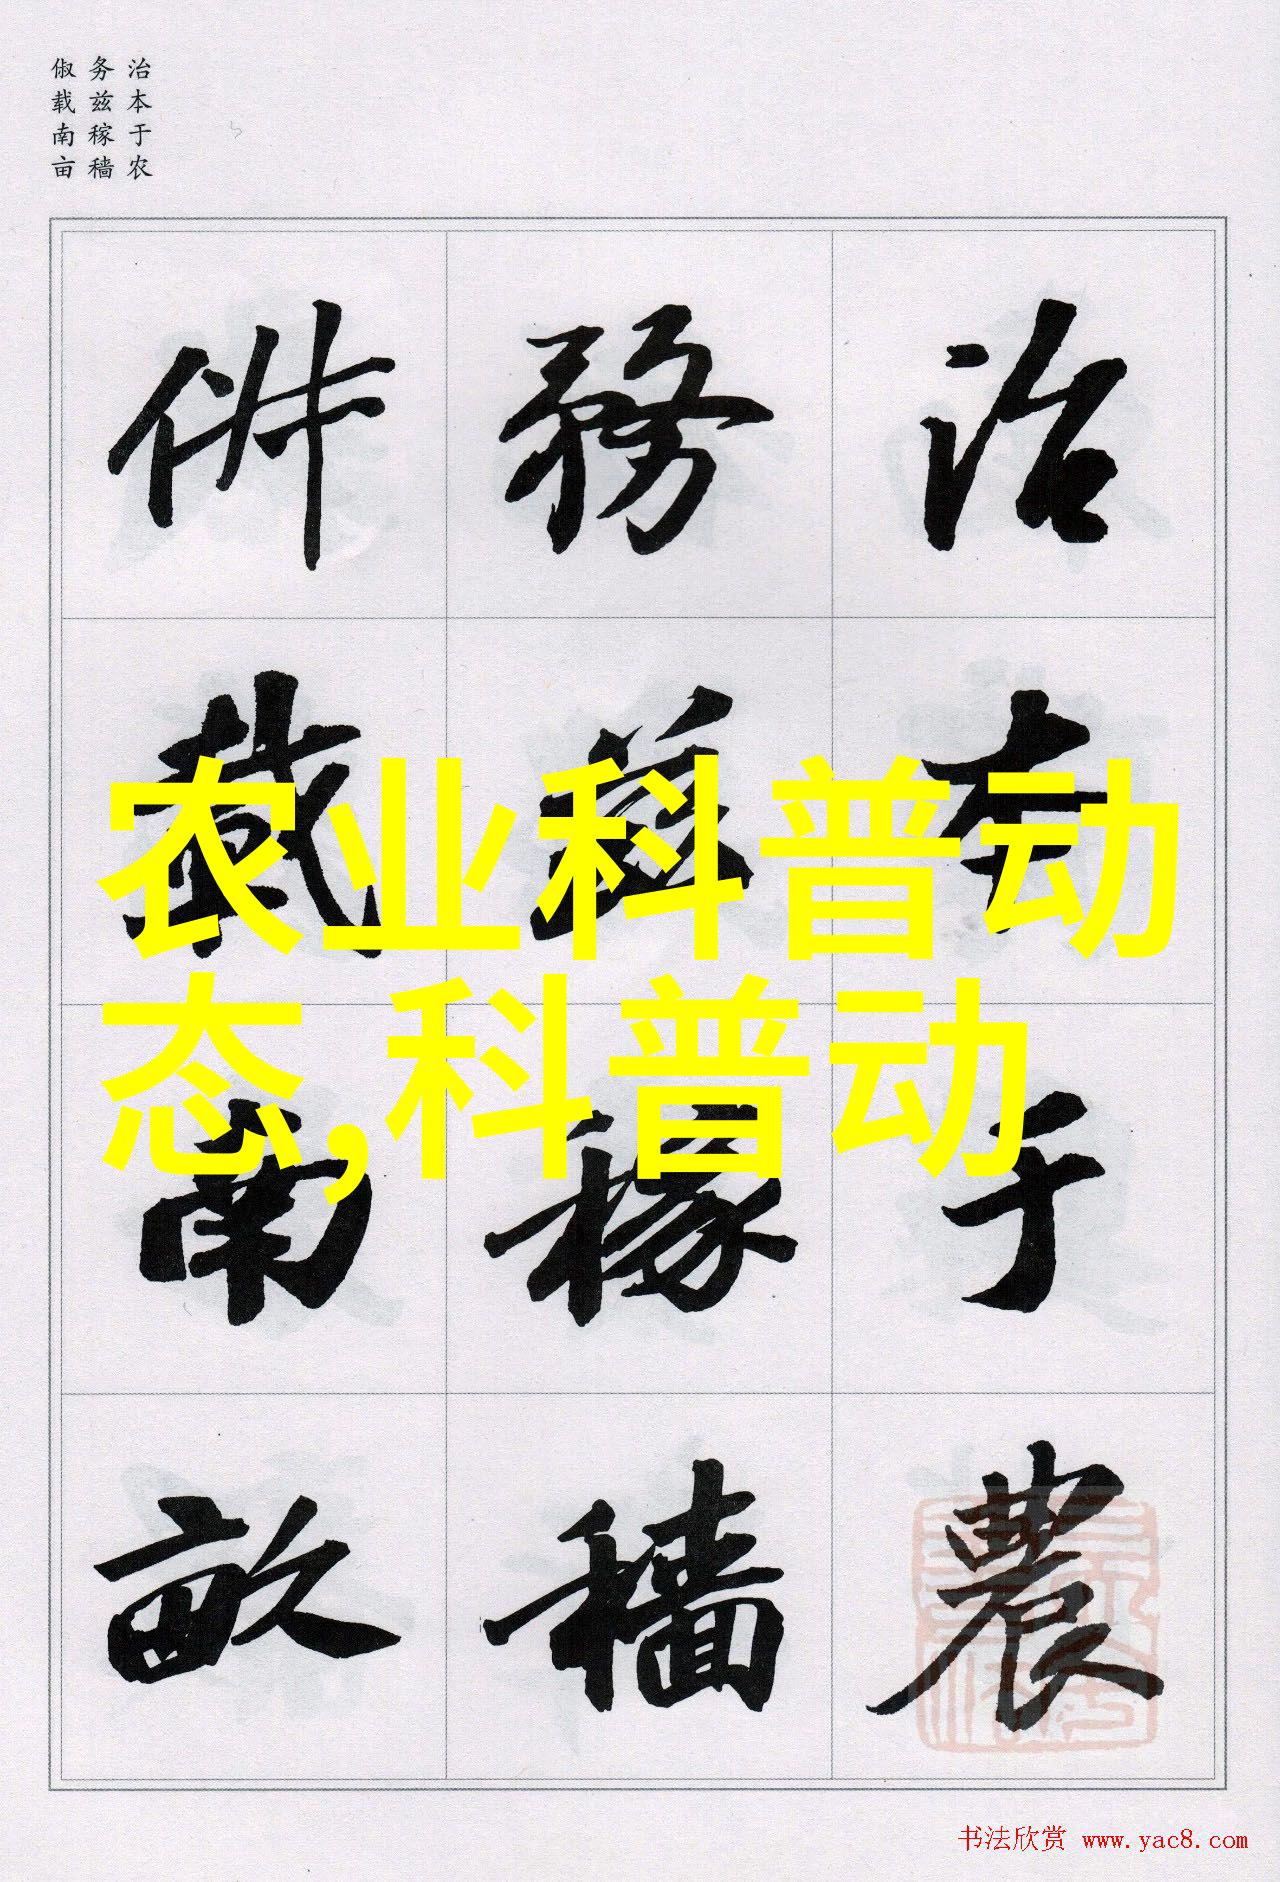 治本于农
务兹稼穑
俶载南亩
治本于農
務茲稼穡
俶載南畝
农业科普动
态,科普动
书法欣赏 www.yac8.com